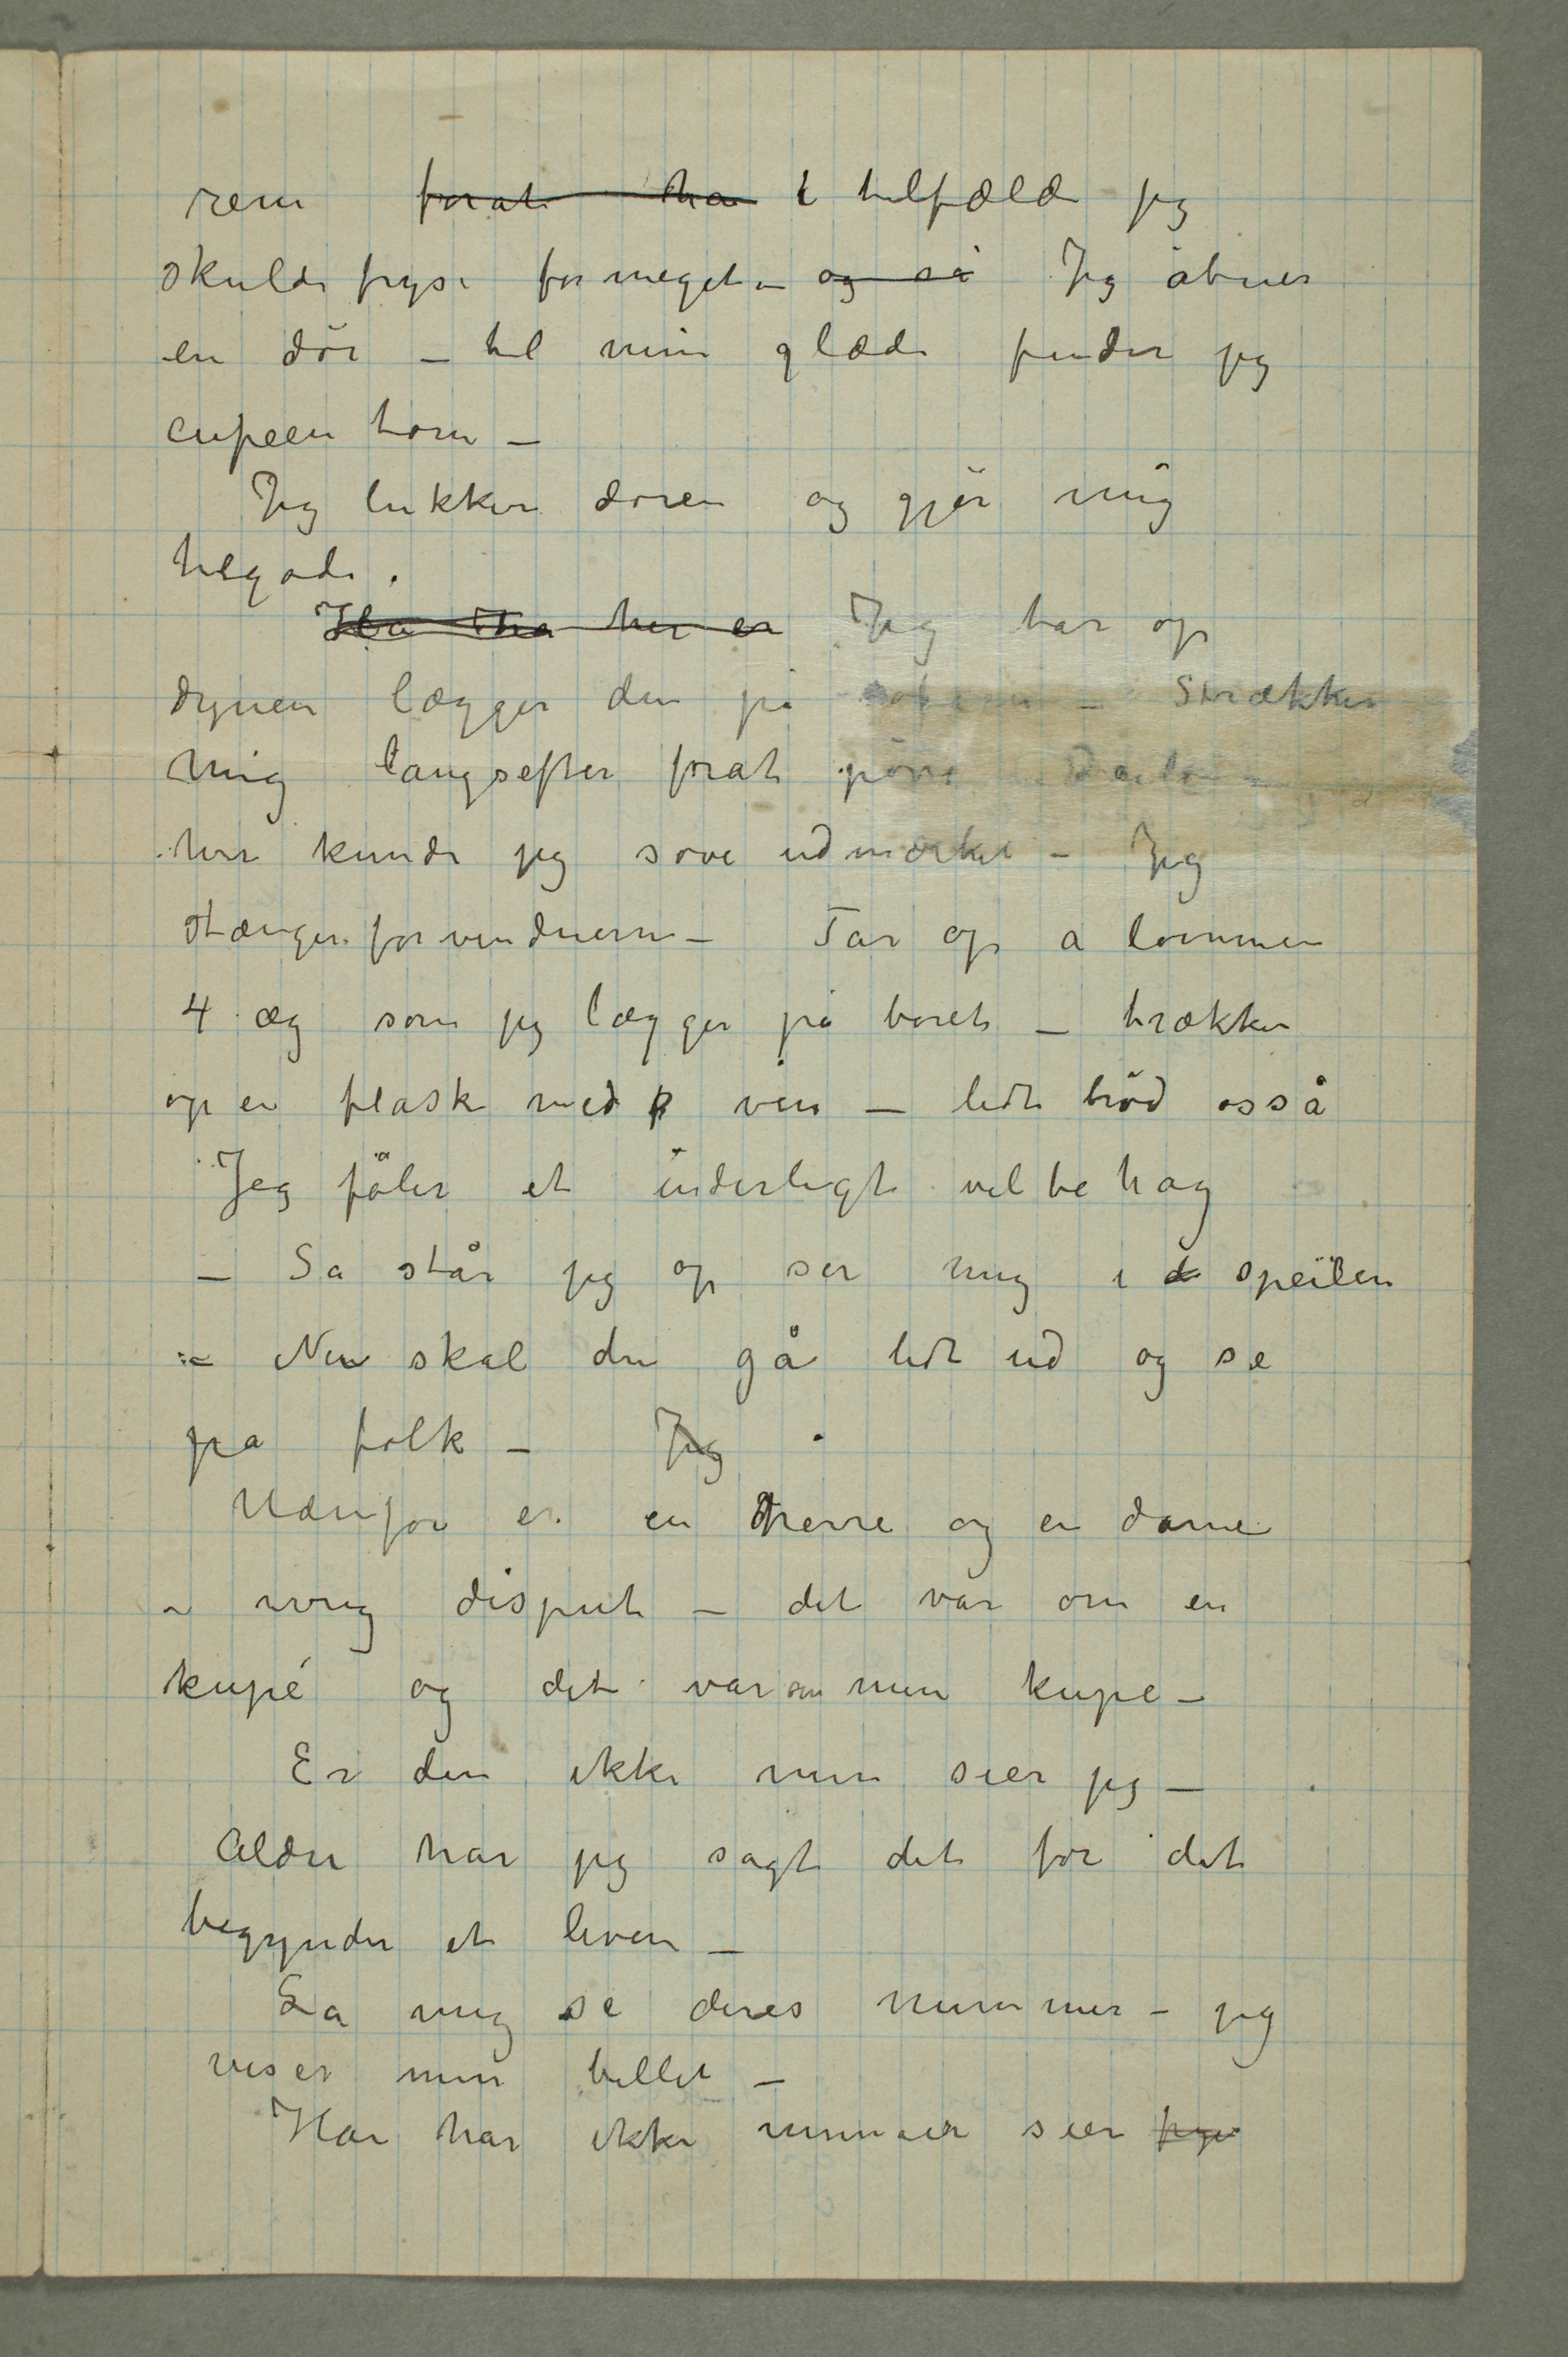 rem forat ha i tilfælde jeg
skulde fryse formeget – og så Jeg åbner
en dör – til min glæde finder jeg
cupeen tom –
Jeg lukker døren og gjör mig
tilgode.
Ha Ha her er Jeg tar op
dynen lægger den på sofaen – Strækker
mig langsefter forat pröve
her kunde jeg sove udmærket – Jeg
stænger for vinduerne – Tar op a lommen
4 æg som jeg lægger på boret – trækker
op en flaske med vin – lidt bröd osså
Jeg föler et inderligt velbehag
– Så står jeg op ser mig i speilen
– Nu skal du gå lidt ud og se
på folk – Jeg
Udenfor er en herre og en dame
i ivrig disput – det var om en
kupé og det var om min kupe –
Er den ikke min sier jeg –
Aldri har jeg sagt det för det
begynder et leven –
La mig se deres nummer – jeg
viser min billet –
Han har ikke nummer sier